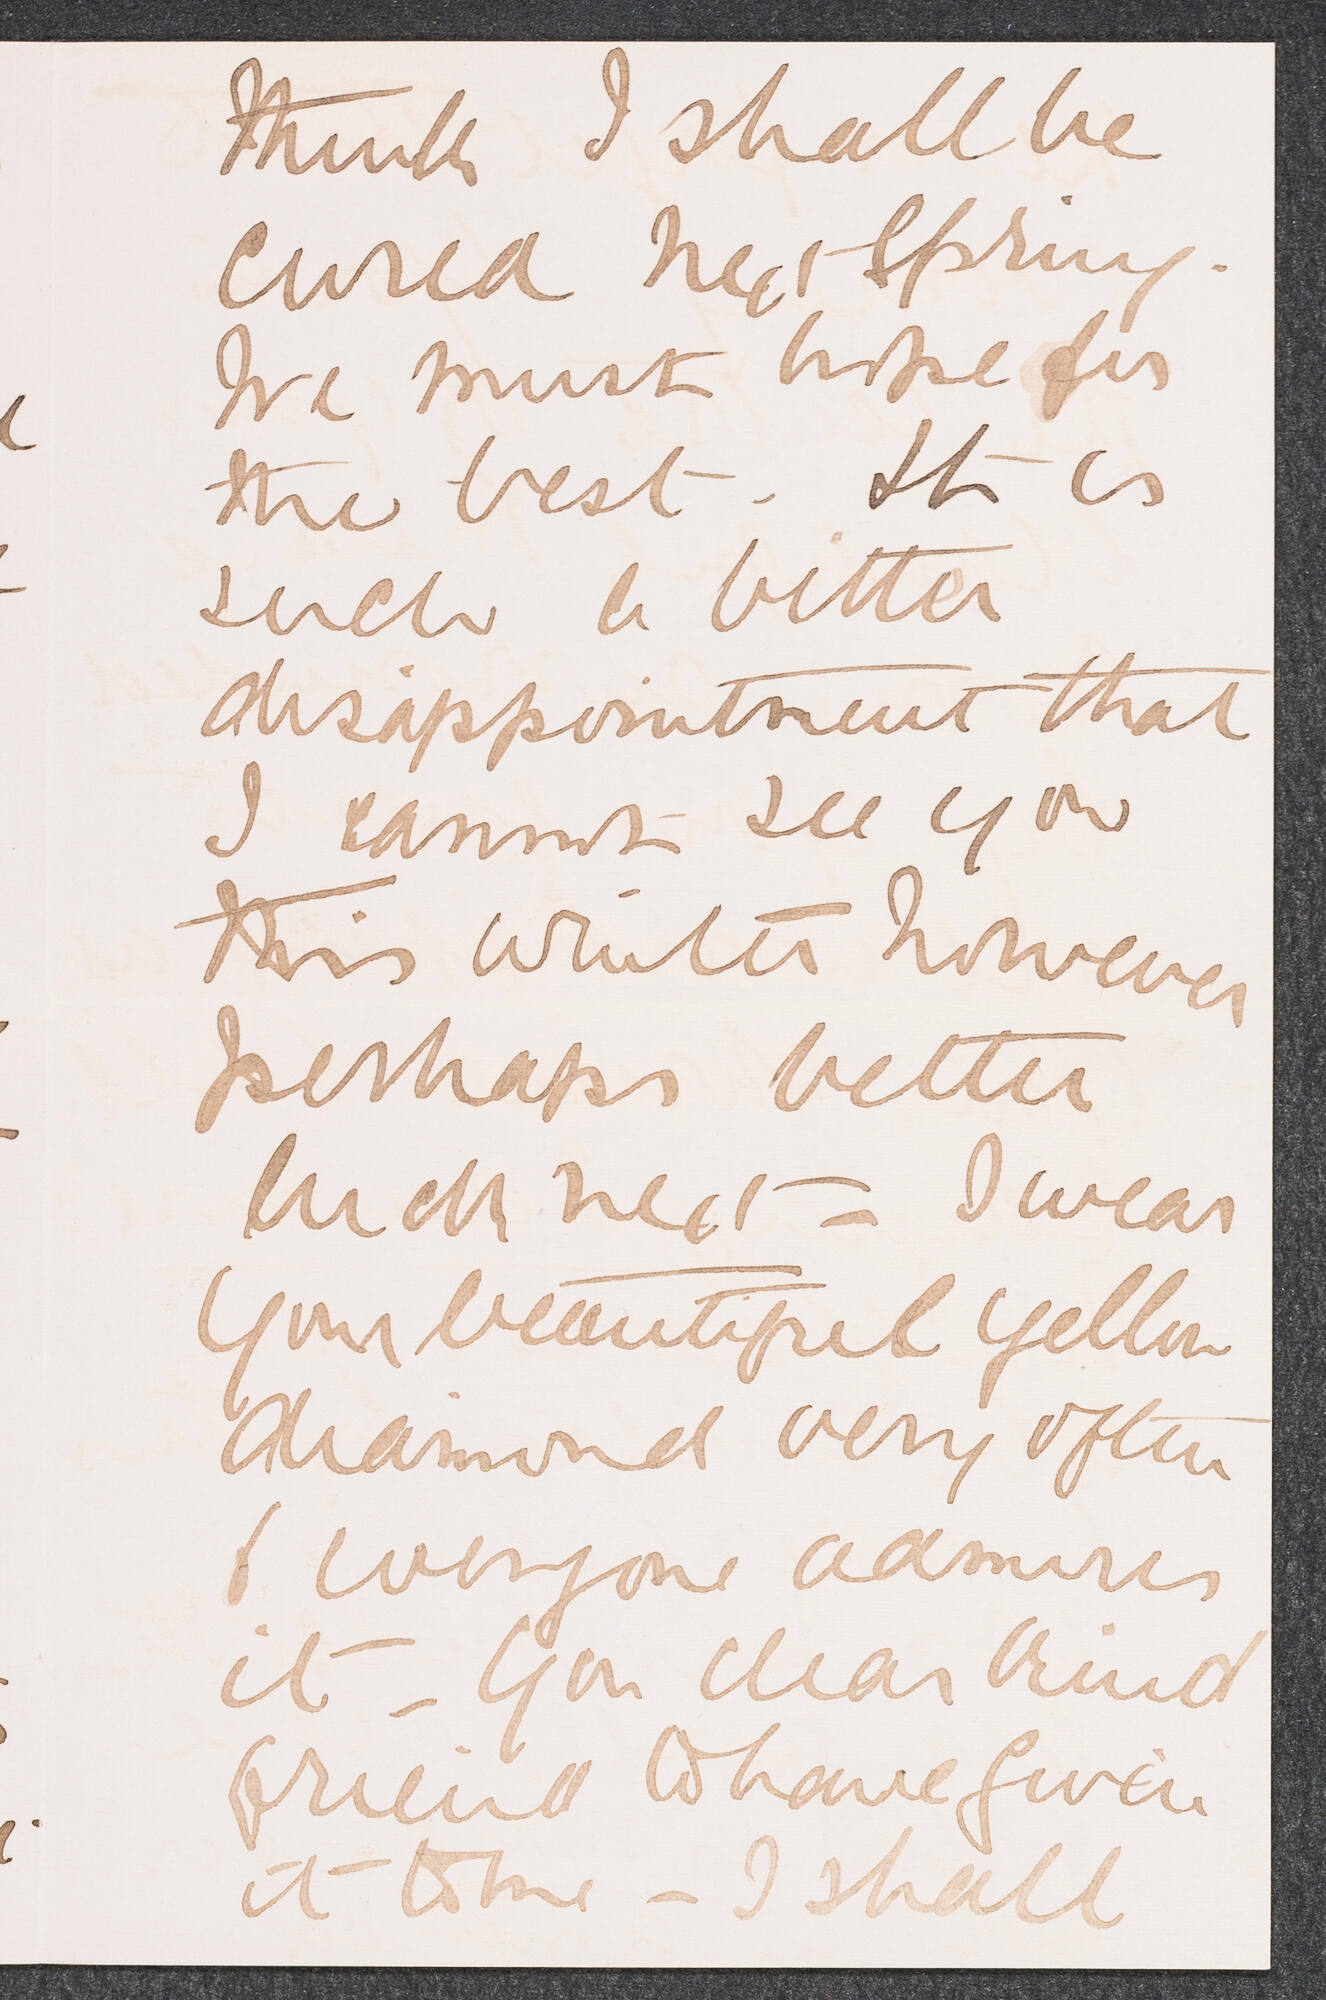 think I shall be
cured next Spring.
We must hope for
the best - It is
such a bitter
disappointment that
I cannot see you
this winter however
perhaps better
luck next = I wear
your beautiful yellow
diamond very often
& everyone admires
it - You dear kind
friend to have given
it to me - I shall